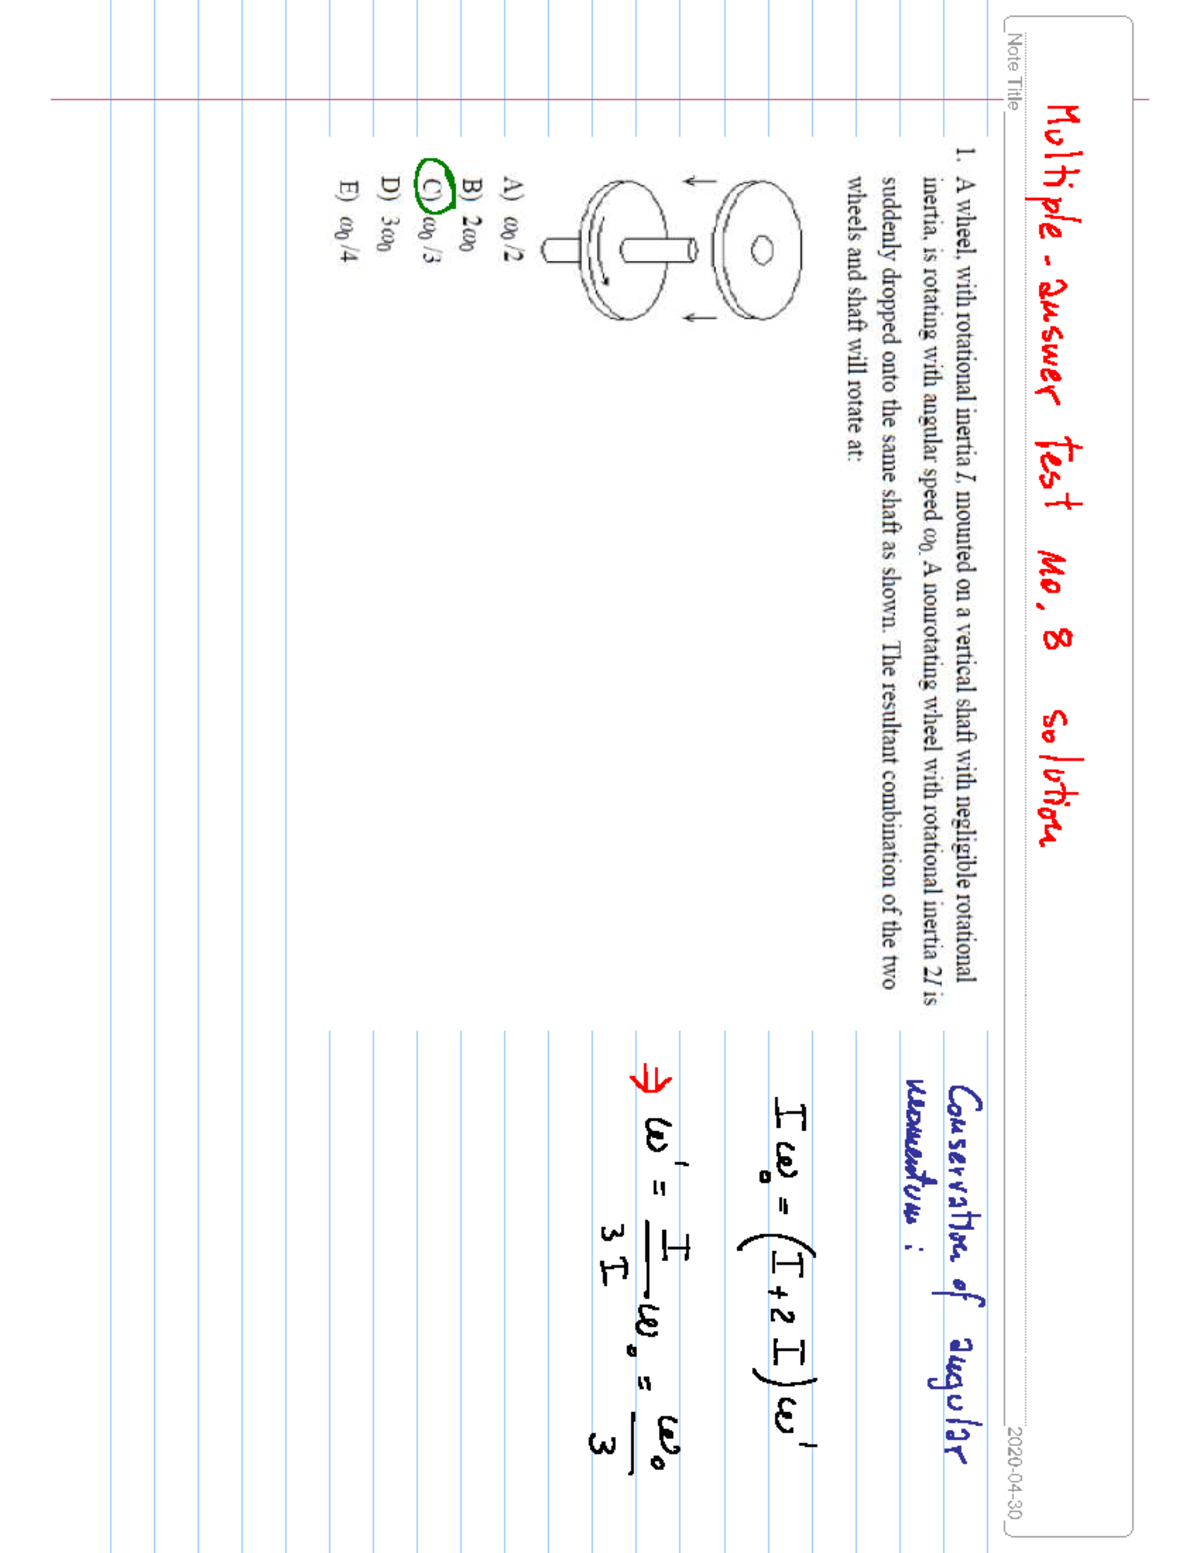 Multiple-answer test No. 8 solution
Note Title
2020-04-30
1. A wheel, with rotational inertia I, mounted on a vertical shaft with negligible rotational
inertia, is rotating with angular speed ω₀. A nonrotating wheel with rotational inertia 2I is
suddenly dropped onto the same shaft as shown. The resultant combination of the two
wheels and shaft will rotate at:
A) ω₀/2
B) 2ω₀
C) ω₀/3
D) 3ω₀
E) ω₀/4
Conservation of angular
momentum:
Iω₀ = (I+2I)ω'
⇒ ω' = I/3I ω₀ = ω₀/3